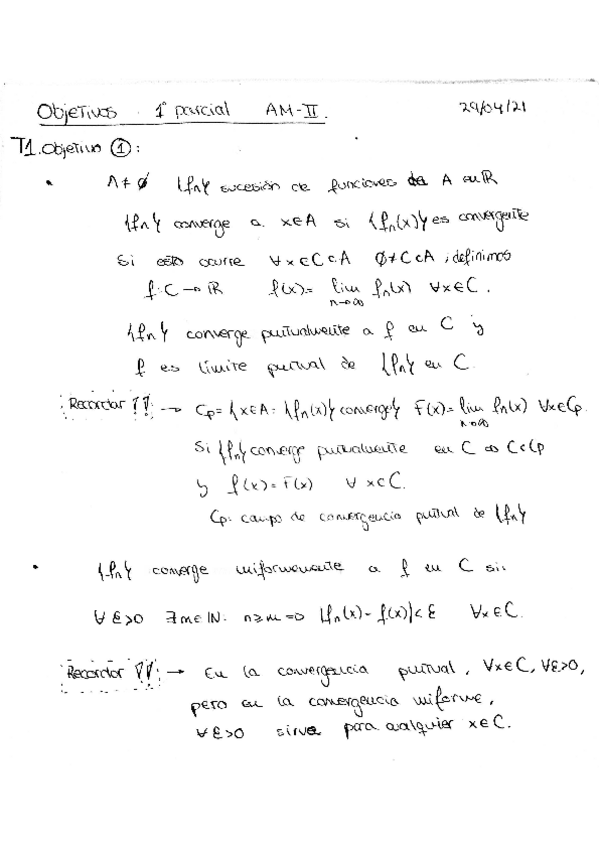 Objetivos 1er parcial AM-II. 29/04/21
T1. Objetivo ①:
• A ≠ ∅ {fn} sucesión de funciones de A en ℝ
{fn} converge a x∈A si {fn(x)} es convergente
Si esto ocurre ∀x∈C⊂A ∅≠C⊂A, definimos
f: C → ℝ f(x) = lim fn(x) ∀x∈C.
n→∞
{fn} converge puntualmente a f en C y
f es límite puntual de {fn} en C.
Recordar !! → Cp = {x∈A: {fn(x)} converge} F(x) = lim fn(x) ∀x∈Cp.
n→∞
Si {fn} converge puntualmente en C ⇔ C⊂Cp
y f(x) = F(x) ∀x∈C.
Cp: campo de convergencia puntual de {fn}
• {fn} converge uniformemente a f en C si:
∀ε>0 ∃m∈ℕ: n≥m ⇒ |fn(x) - f(x)| < ε ∀x∈C.
Recordar !! → En la convergencia puntual, ∀x∈C, ∀ε>0,
pero en la convergencia uniforme,
∀ε>0 sirve para cualquier x∈C.